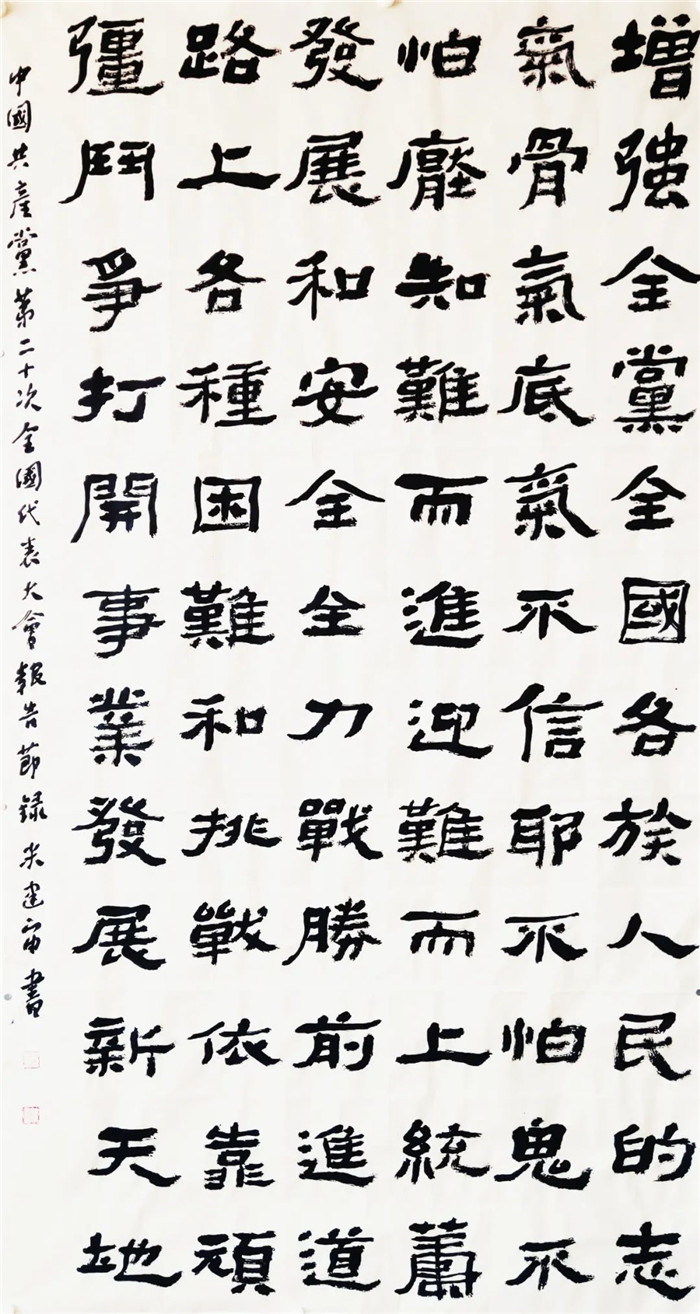 增强全黨全國各族人民的志
氣骨氣底氣不信耶不怕鬼不
怕壓知難而進迎難而上統蕭
發展和安全全力戰勝前進道
路上各種困難和挑戰依靠頑
彊鬥爭打開事業發展新天地
中國共產黨第二十次全國代表大會報告節錄 建書